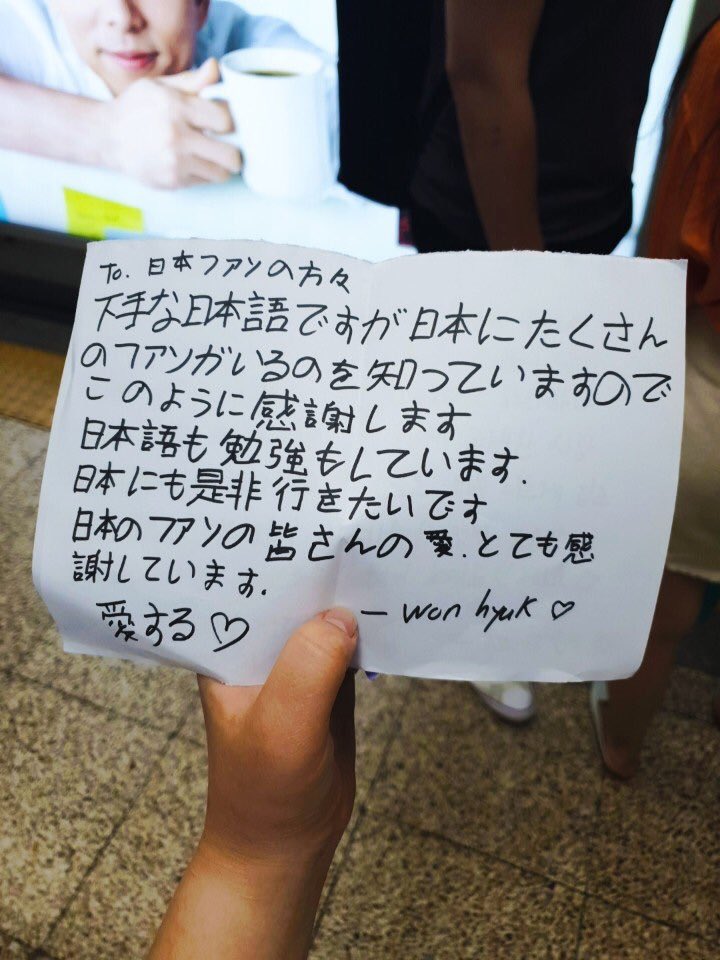 To. 日本ファンの方々
下手な日本語ですが日本にたくさん
のファンがいるのを知っていますので
このように感謝します
日本語も勉強もしています.
日本にも是非行きたいです
日本のファンの皆さんの愛.とても感
謝しています.
愛する♡
- won hyuk ♡